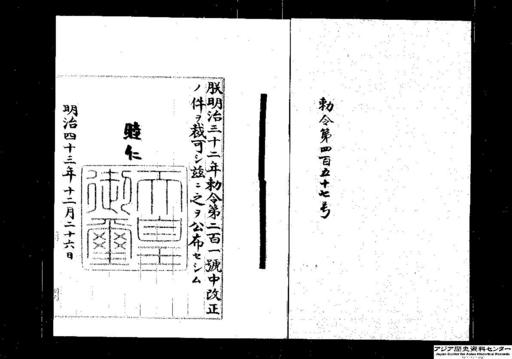 勅令第四百五十七号
朕明治三十二年勅令第二百一號中改正
ノ件ヲ裁可シ茲ニ之ヲ公布セシム
睦仁
天皇
御璽
明治四十三年十二月二十六日
アジア歴史資料センター
Japan Center for Asian Historical Records